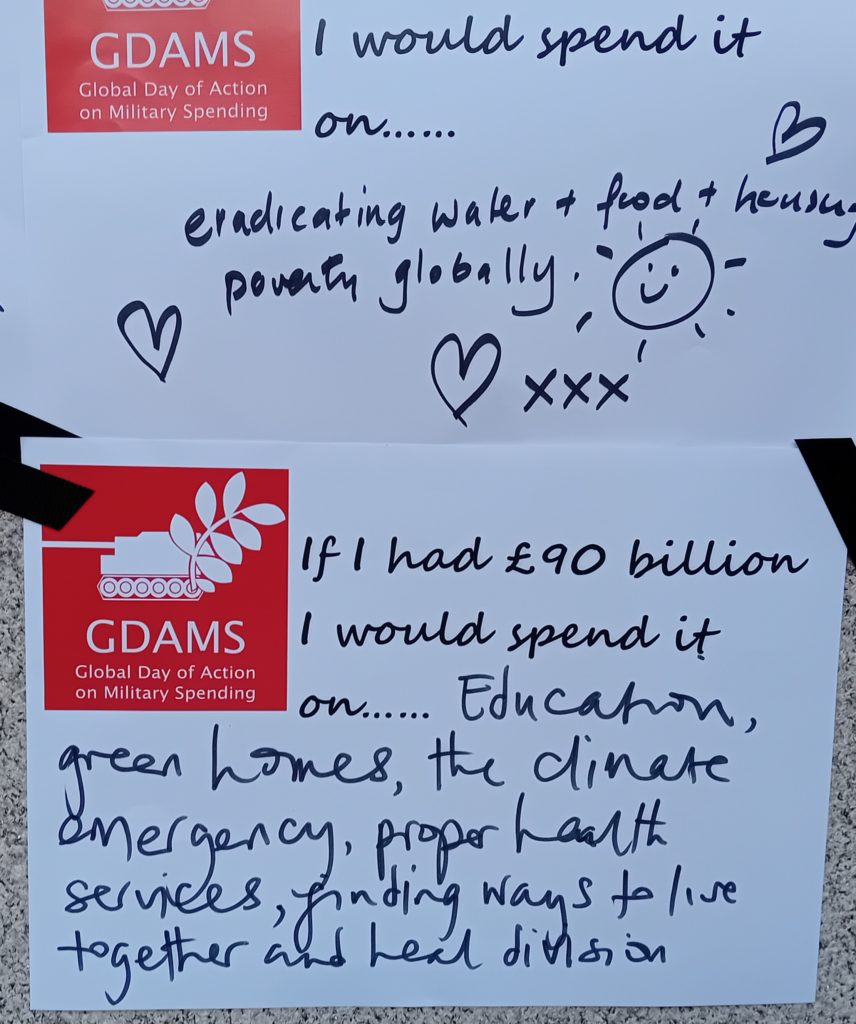 GDAMS
Global Day of Action
on Military Spending
I would spend it
on......
eradicating water + food + housing
poverty globally.
xxx
GDAMS
Global Day of Action
on Military Spending
If I had £90 billion
I would spend it
on...... Education,
green homes, the climate
emergency, proper health
services, finding ways to live
together and heal division